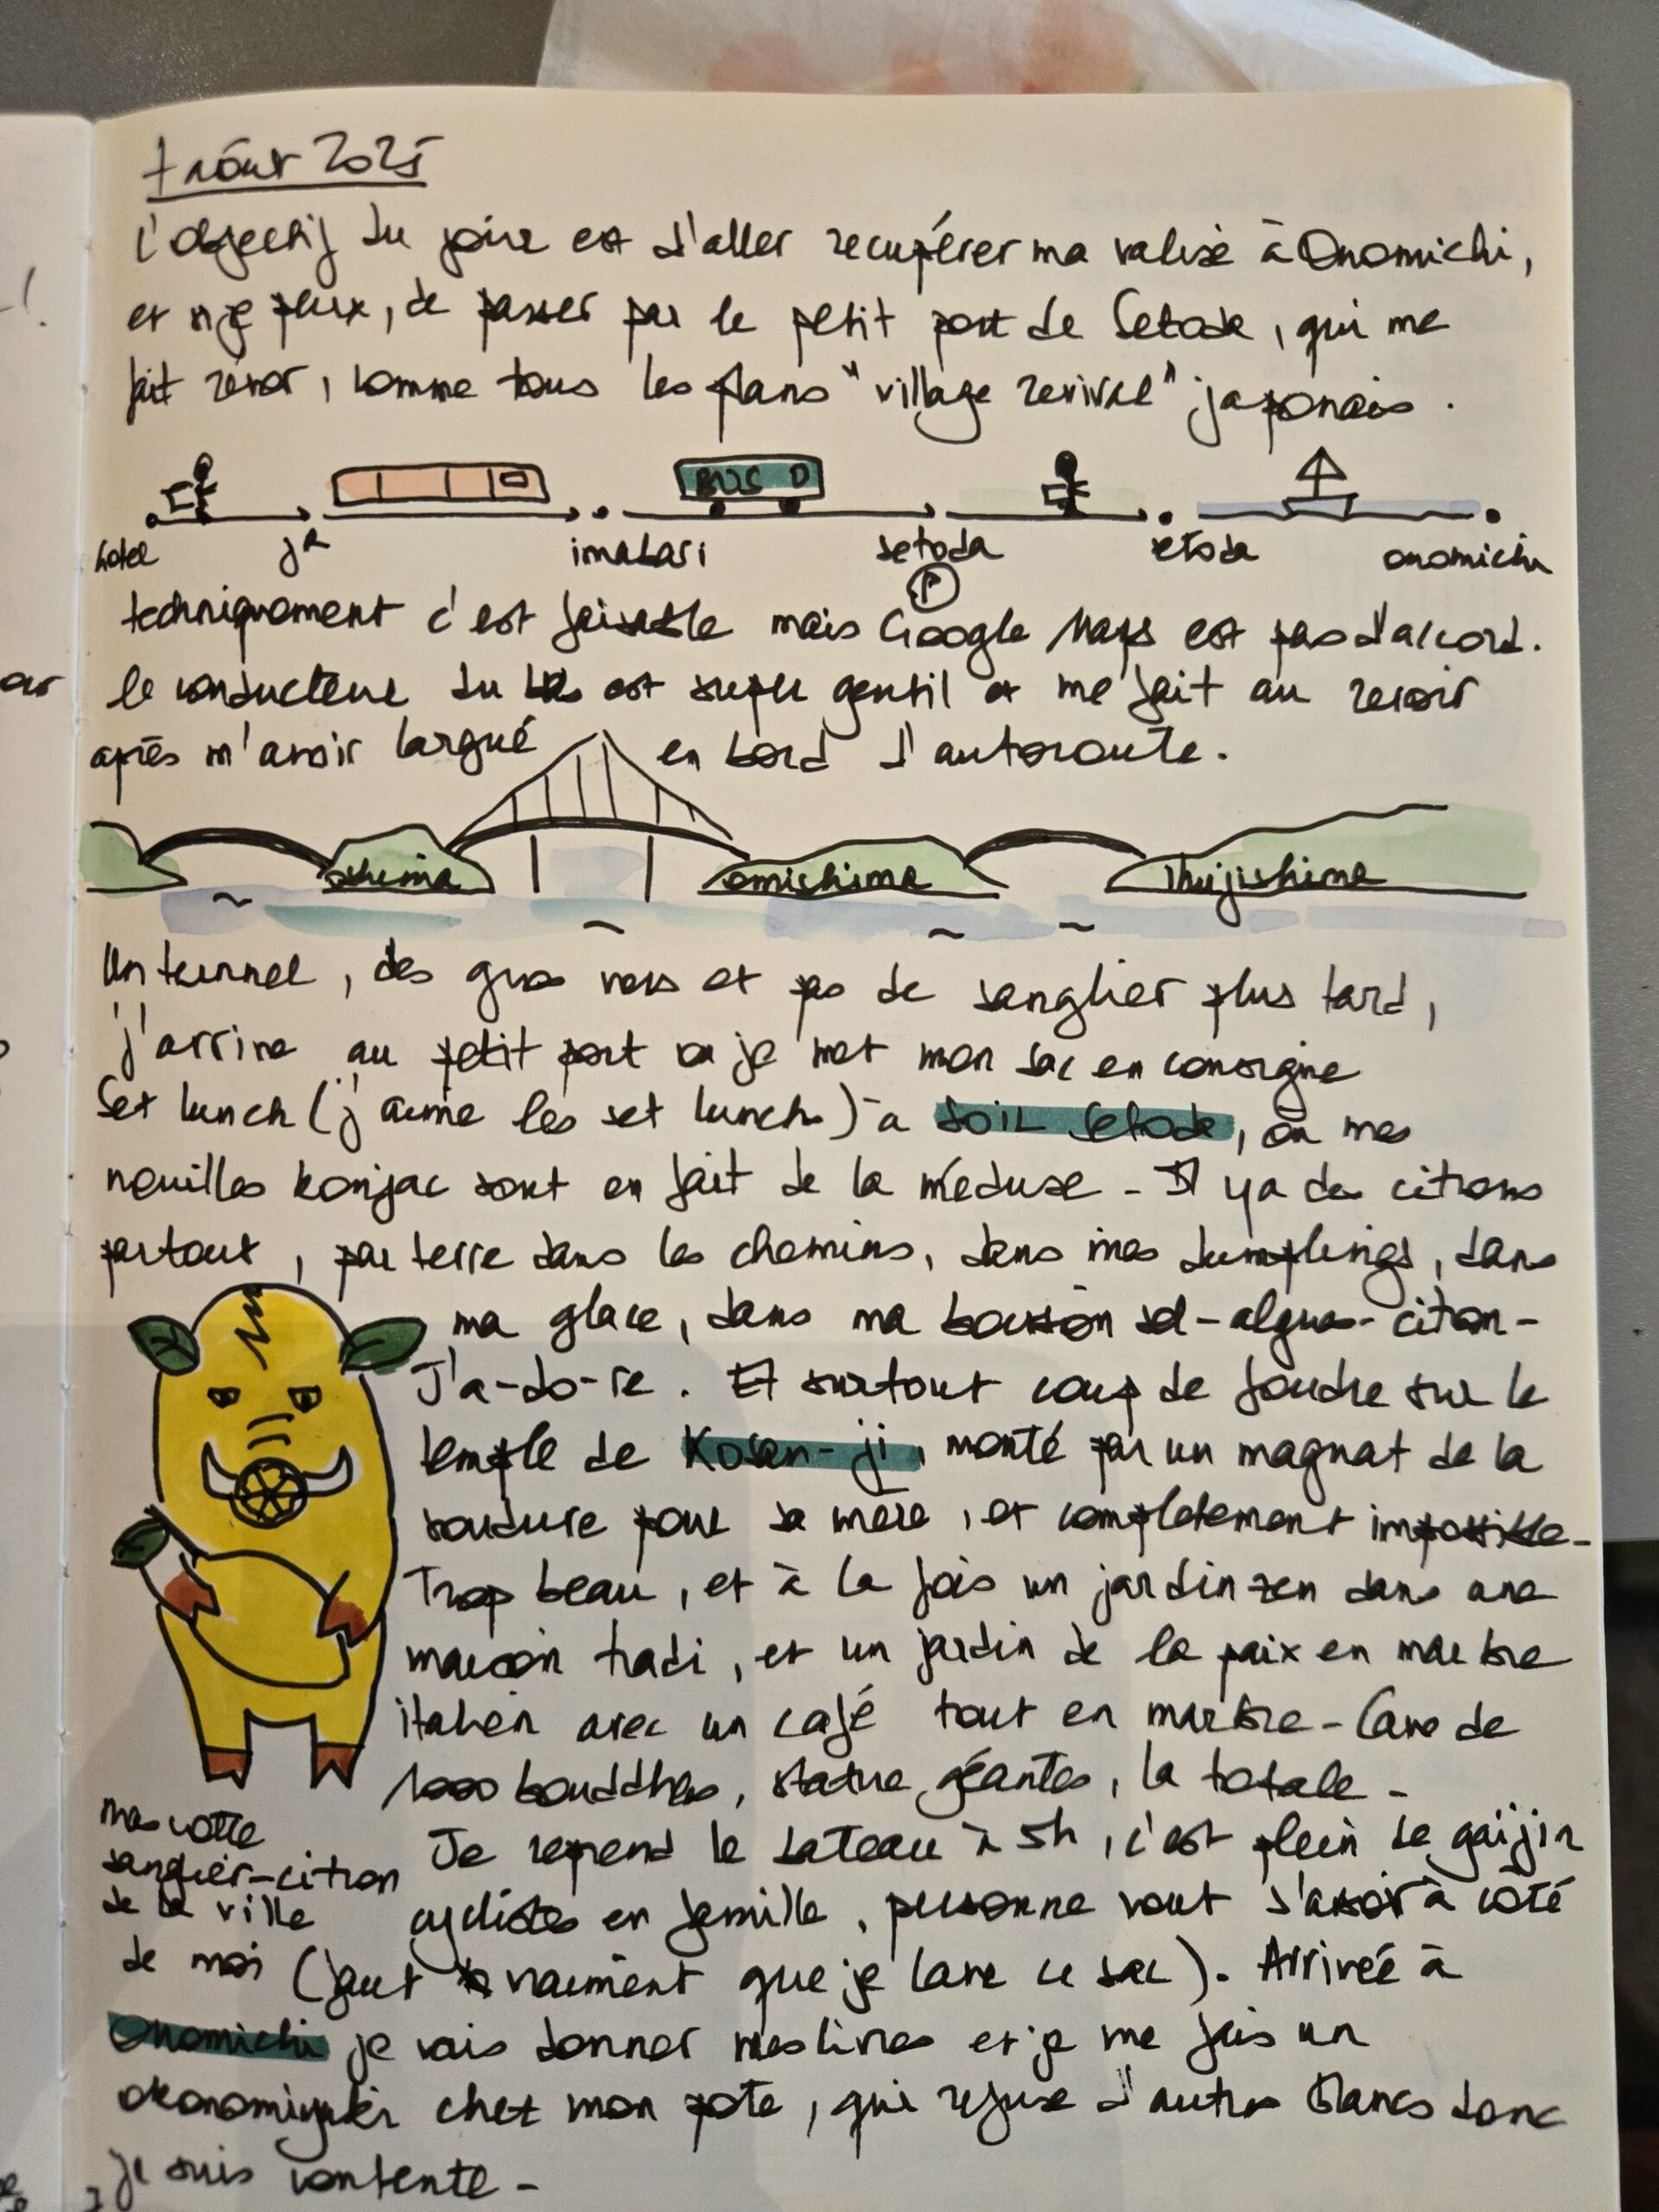 7 août 2025
L'objectif du jour est d'aller recupérer ma valise à Onomichi,
et si je peux, de passer par le petit port de Setoda, qui me
fait rêver, comme tous les plans "village revival" japonais.
BUS
hotel JR imabari setoda setoda onomichi
P
techniquement c'est faisable mais Google Maps est pas d'accord.
le conducteur du bus est super gentil et me fait au revoir
après m'avoir largué en bord d'autoroute.
oshima omishima Ikujishima
Un tunnel, des gros vers et pas de sanglier plus tard,
j'arrive au petit port où je met mon sac en consigne
Set lunch (j'aime les set lunch) à SOIL Setoda, où mes
nouilles konjac sont en fait de la méduse - Il y a des citrons
partout, par terre dans les chemins, dans mes dumplings, dans
ma glace, dans ma boisson sel-algue-citron-
J'a-do-re. Et surtout coup de foudre sur le
temple de Kosan-ji, monté par un magnat de la
soudure pour sa mère, et complètement impossible-
Trop beau, et à la fois un jardin zen dans une
maison tradi, et un jardin de la paix en marbre
italien avec un café tout en marbre - Cave de
1000 bouddhas, statue géantes, la totale -
mascotte
sanglier-citron
de la ville
Je reprend le bateau à 5h, c'est plein de gaijin
cyclistes en famille, personne veut s'asoir à côté
de moi (faut vraiment que je lave ce sac). Arrivée à
Onomichi je vais donner mes livres et je me fais un
okonomiyaki chez mon pote, qui refuse d'autres Blancs donc
je suis contente -